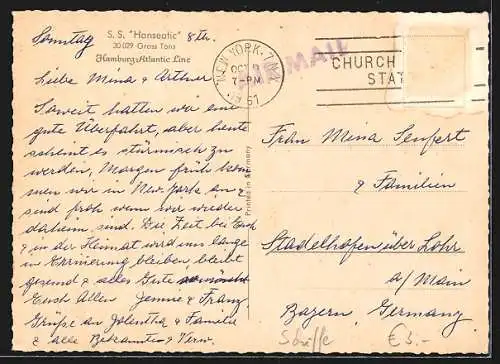 Sonntag 8th.
S. S. "Hanseatic"
30 029 Gross Tons
Hamburg-Atlantic Line
Liebe Mina & Arthur
Soweit hatten wir eine
gute Überfahrt, aber heute
scheint es stürmisch zu
werden, Morgen früh kom
men wir in New York an &
sind froh wenn wir wieder
daheim sind. Die Zeit bei Euch
& in der Heimat wird uns lange
in Erinnerung bleiben bleibt
gesund & alles Gute
Euch Allen Jennie & Franz
Grüße an & Familie
& alle Bekannten & Verw.
Printed in Germany
NEW YORK, N.Y.
OCT 9
7-PM
1961
AIR MAIL
CHURCH
STAT
Frau Mina Seufert
& Familien
Stadelhofen über Lohr
a/Main
Bayern, Germany
€ 3.-